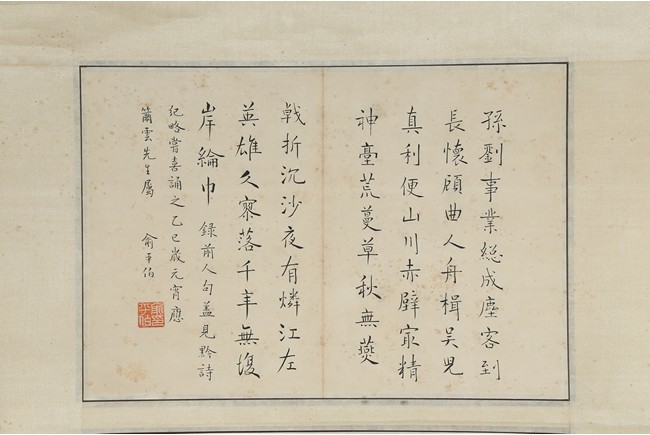 孫劉事業総成塵客到
長懷顧曲人舟楫吳兒
真利便山川赤壁冣精
神臺荒蔓草秋無燕
戟折沉沙夜有燐江左
英雄久寥落千年無復
岸綸巾 錄前人句蓋見黔詩
紀略嘗喜誦之乙巳歲元宵應
簫雲先生屬 俞平伯